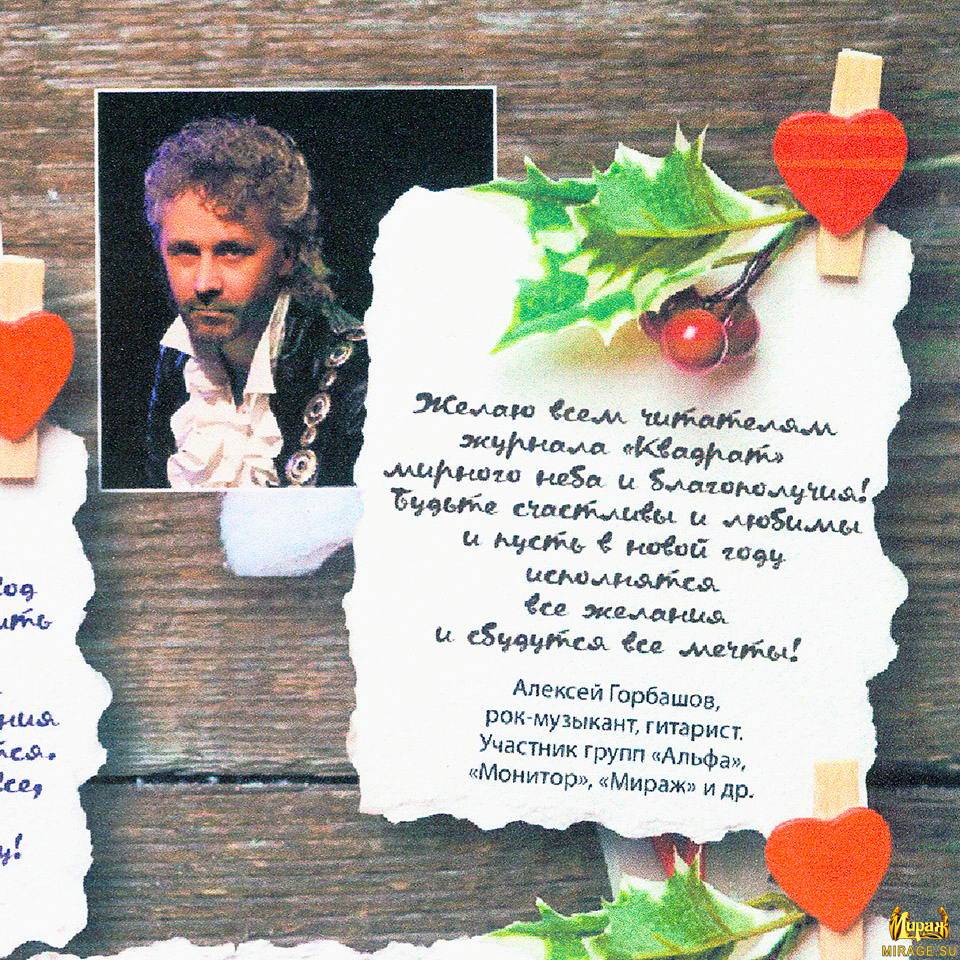 Желаю всем читателям
журнала «Квадрат»
мирного неба и благополучия!
Будьте счастливы и любимы
и пусть в новой году
исполнятся
все желания
и сбудутся все мечты!
Алексей Горбашов,
рок-музыкант, гитарист.
Участник групп «Альфа»,
«Монитор», «Мираж» и др.
Мираж
MIRAGE.SU